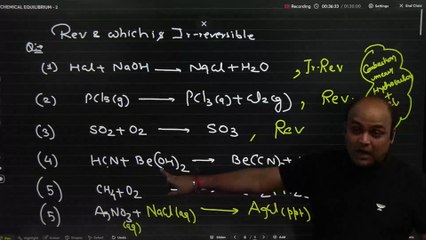 CHEMICAL EQUILIBRIUM - 2
Recording
00:36:33
End Class
Rev & which is Ir-reversible
Q:-
(1) HCl + NaOH → NaCl + H2O, Ir-Rev
(2) PCl5(g) → PCl3(g) + Cl2(g), Rev
(3) SO2 + O2 → SO3, Rev
(4) HCN + Be(OH)2 → Be(CN) +
(5) CH4 + O2
(5) AgNO3 + NaCl(aq) → AgCl(ppt)
(aq)
Combustion
means
Hydrocarbon
+